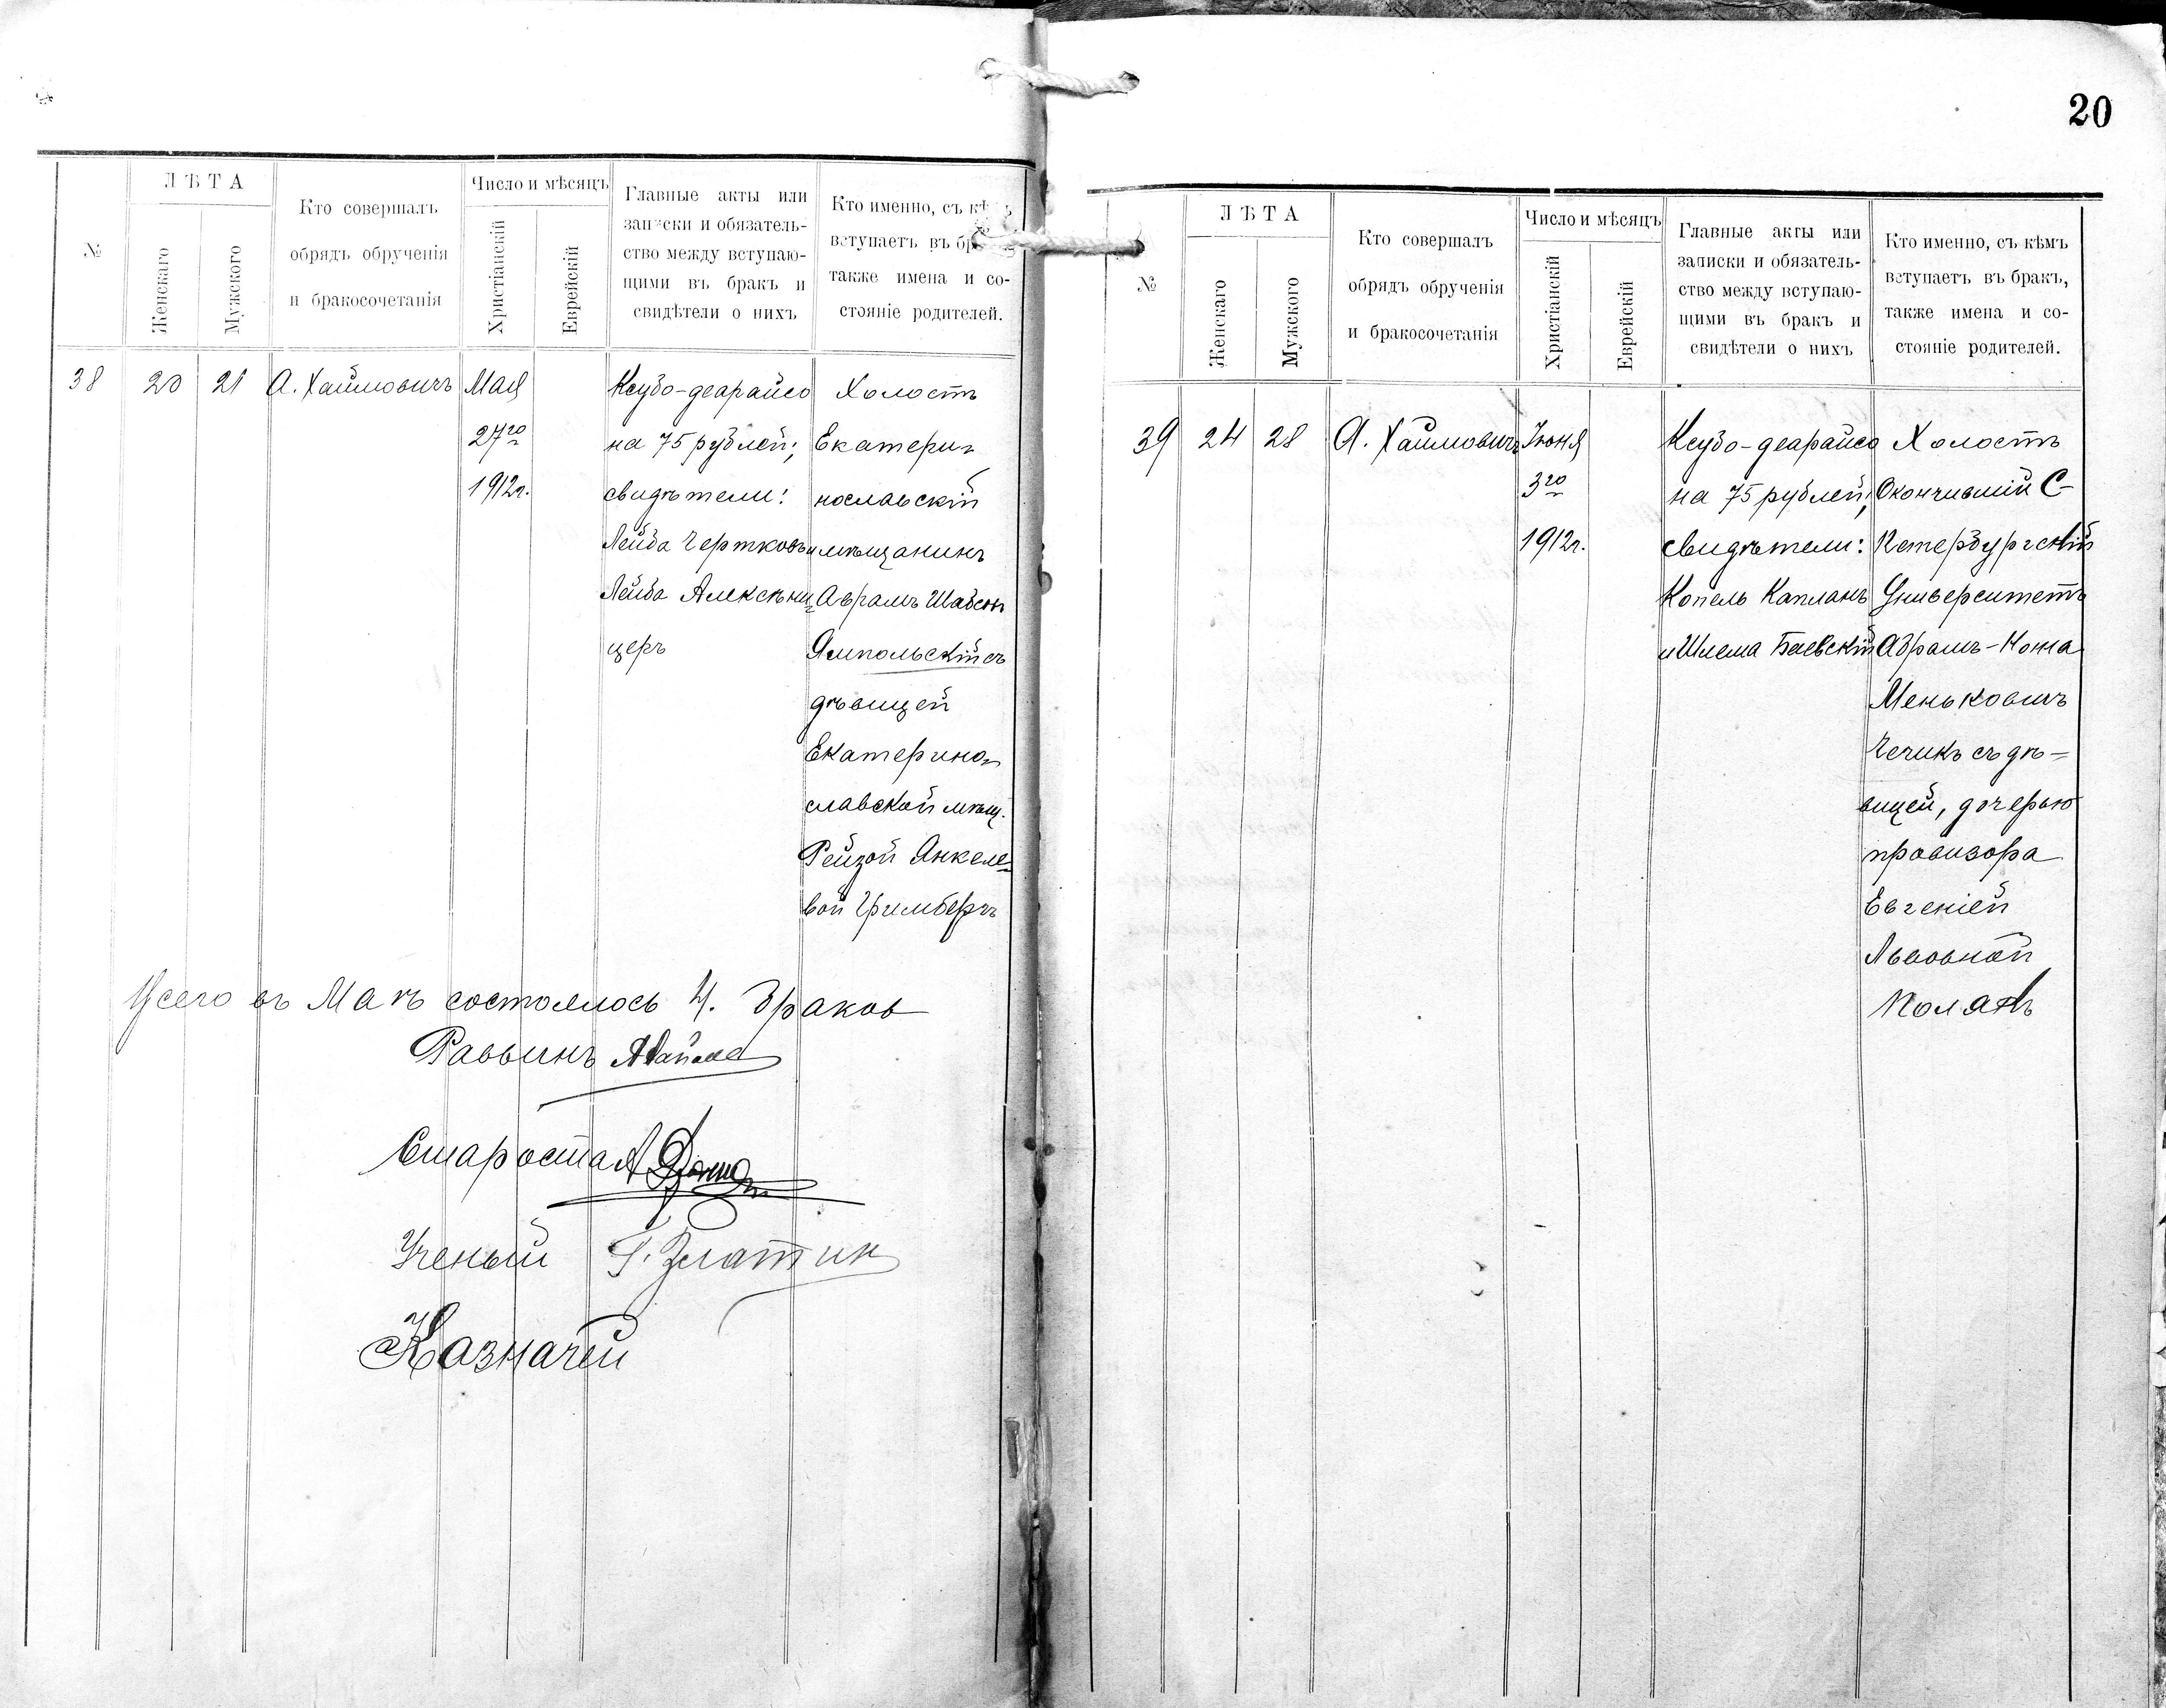 20
№
ЛѢТА
Женскаго
Мужского
Кто совершалъ
обрядъ обрученія
и бракосочетанія
Число и мѣсяцъ
Христіанскій
Еврейскій
Главные акты или
записки и обязатель-
ство между вступаю-
щими въ бракъ и
свидѣтели о нихъ
Кто именно, съ кѣмъ
вступаетъ въ бракъ,
также имена и со-
стояніе родителей.
38
20
21
А. Хаймовичъ
Мая
27го
1912г.
Ксубо-деарайсо
на 75 рублей;
свидѣтели:
Лейба Чертковъ и
Лейба Алексѣни-
церъ
Холостъ
Екатери-
нославскій
мѣщанинъ
Аврамъ Шабсов
Ямпольскій съ
дѣвицей
Екатерино-
славской мѣщ.
Рейзой Янкеле-
вой Гримбергъ
Всего въ Маѣ состоялось 4. браков
Раввинъ
Староста
Ученый Г. Златин
Казначей
№
ЛѢТА
Женскаго
Мужского
Кто совершалъ
обрядъ обрученія
и бракосочетанія
Число и мѣсяцъ
Христіанскій
Еврейскій
Главные акты или
записки и обязатель-
ство между вступаю-
щими въ бракъ и
свидѣтели о нихъ
Кто именно, съ кѣмъ
вступаетъ въ бракъ,
также имена и со-
стояніе родителей.
39
24
28
А. Хаймовичъ
Іюня
3го
1912г.
Ксубо-деарайсо
на 75 рублей;
свидѣтели:
Копель Капланъ
и Шлема Баевскій
Холостъ
Окончившій С-
Петербургскій
Университетъ
Абрамъ-Нонна
Меньковичъ
Чечикъ съ дѣ-
вицей, дочерью
провизора
Евгеніей
Львовной
Полякъ